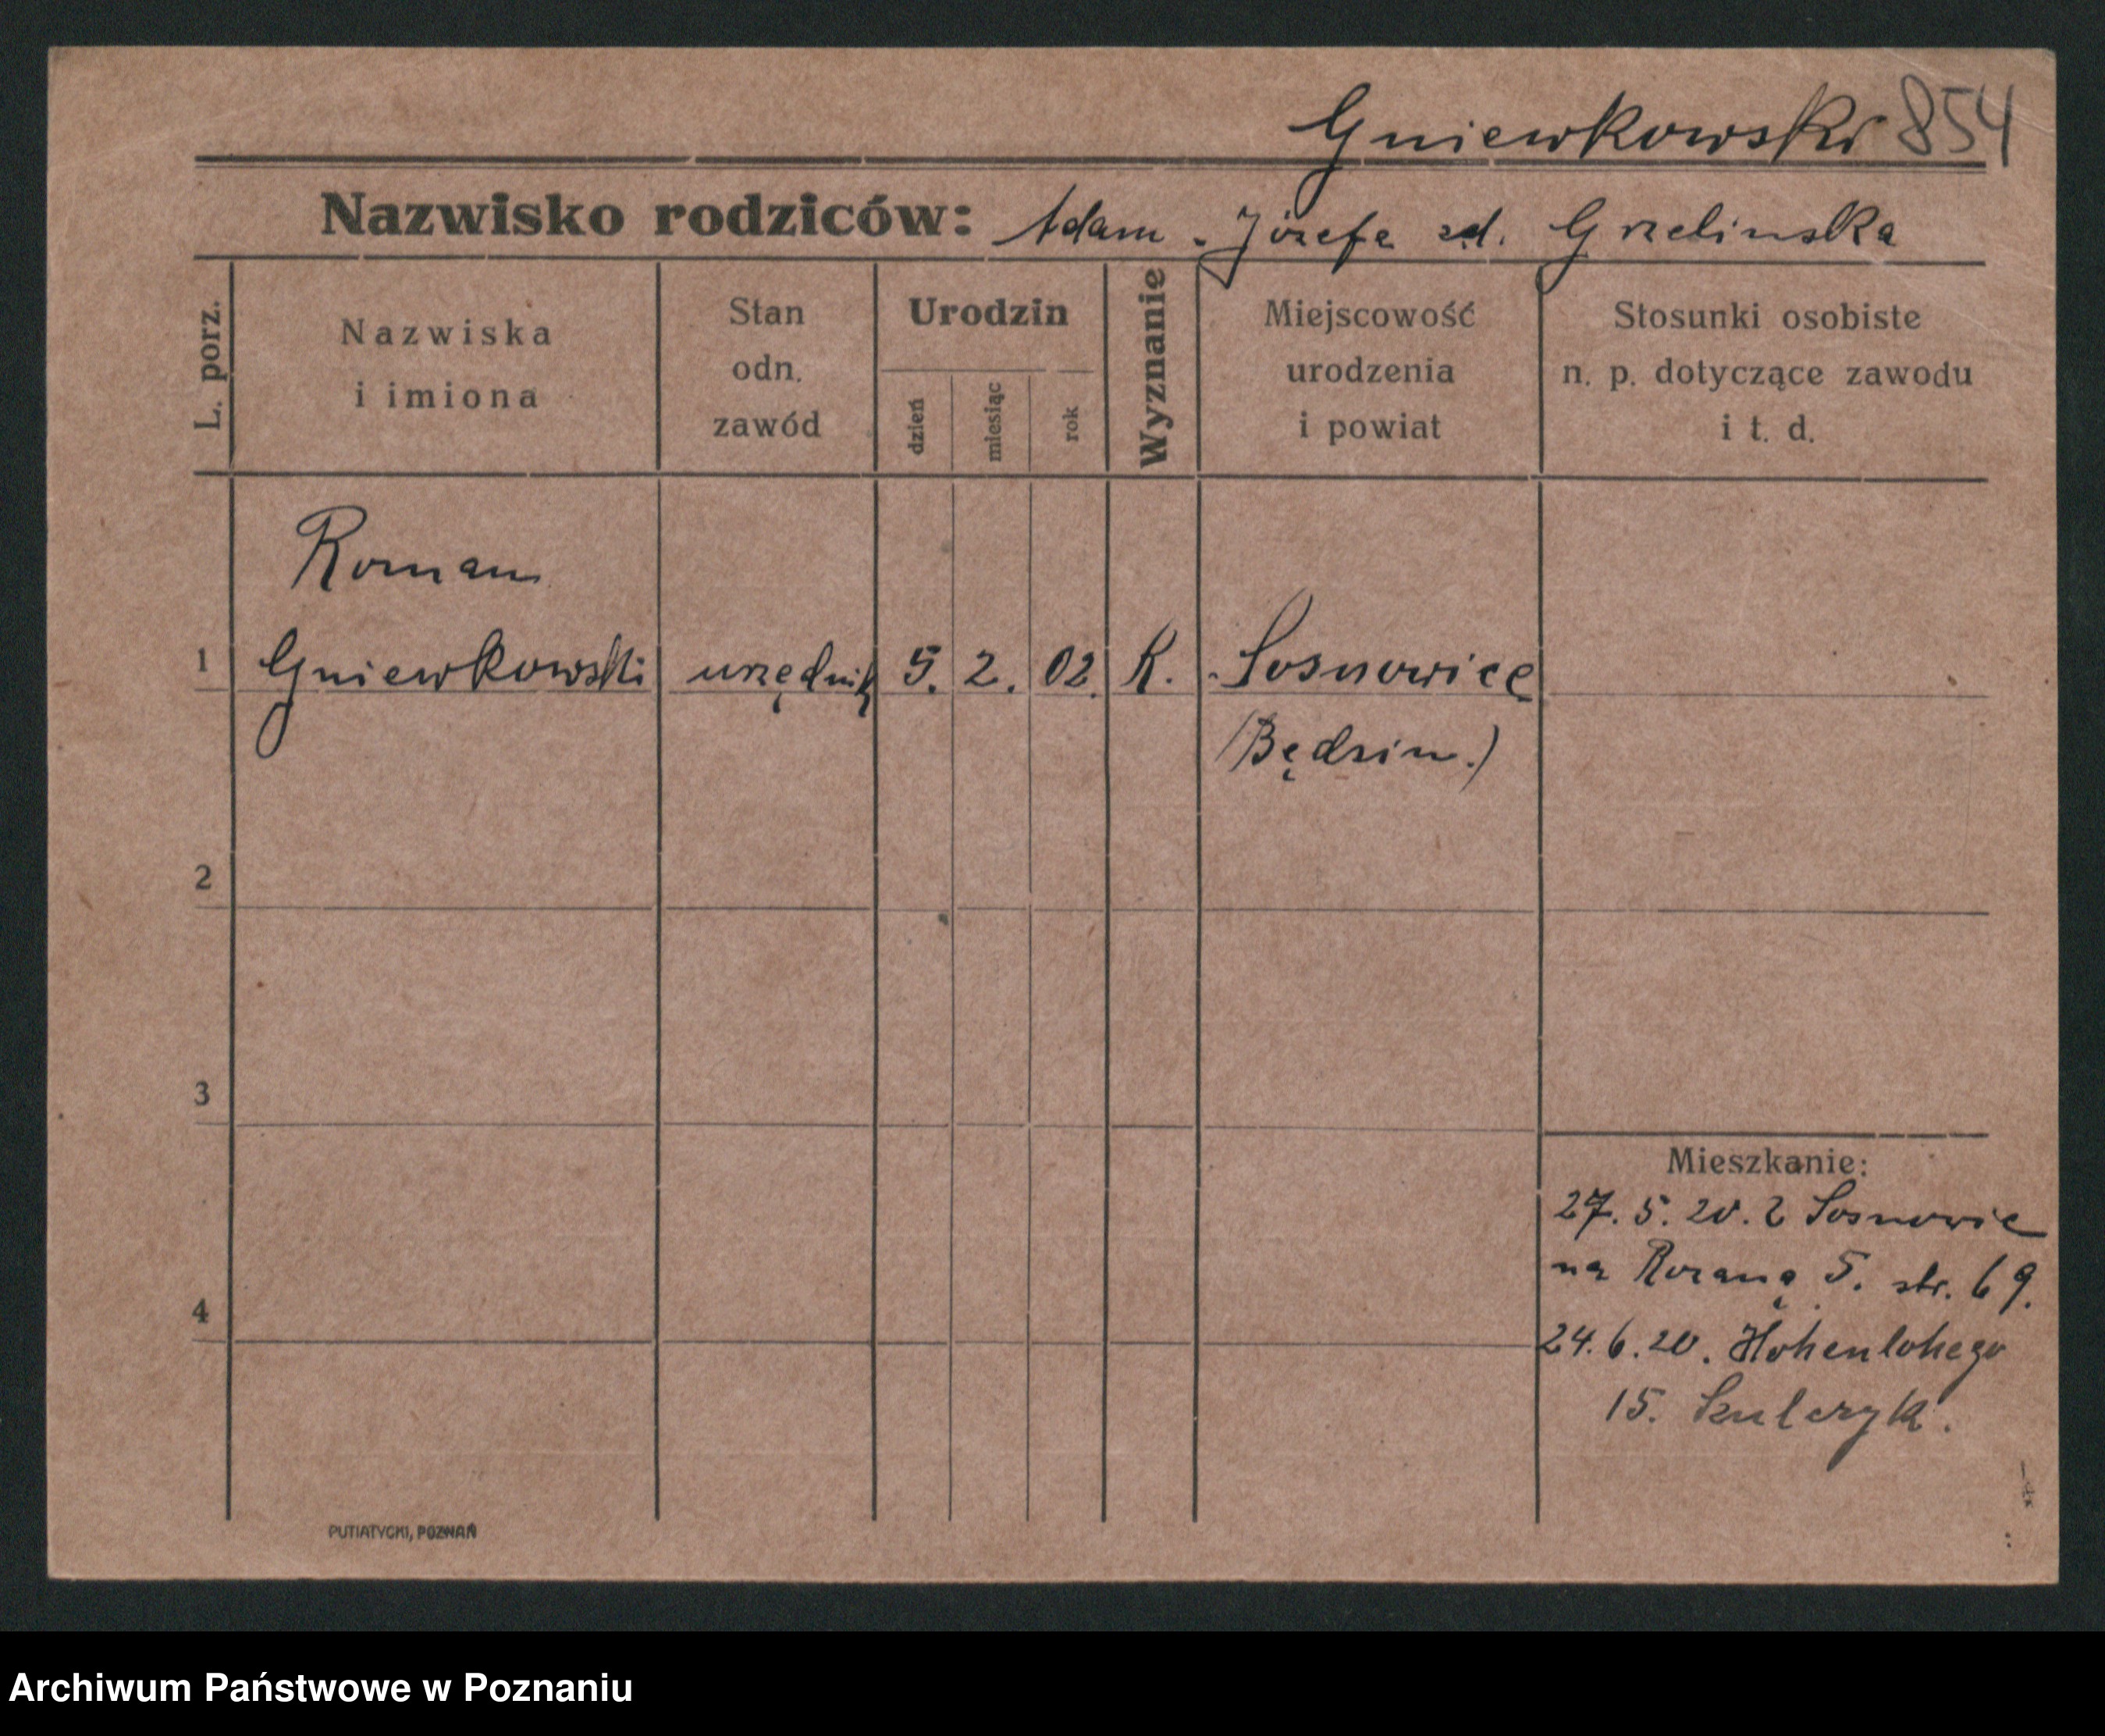 Gniewkowski 854
Nazwisko rodziców: Adam - Józefa zd. Grzelinska
L. porz.
Nazwiska
i imiona
Stan
odn.
zawód
Urodzin
dzień
miesiąc
rok
Wyznanie
Miejscowość
urodzenia
i powiat
Stosunki osobiste
n. p. dotyczące zawodu
i t. d.
Roman
1 Gniewkowski urzędnik 5. 2. 02. K. Sosnowice
(Będzin.)
2
3
4
Mieszkanie:
27. 5. 20. z Sosnowic
na Rozaną 5. str. 69.
24. 6. 20. Hohenlohego
15. Szulczyk.
PUTIATYCKI, POZNAŃ
Archiwum Państwowe w Poznaniu